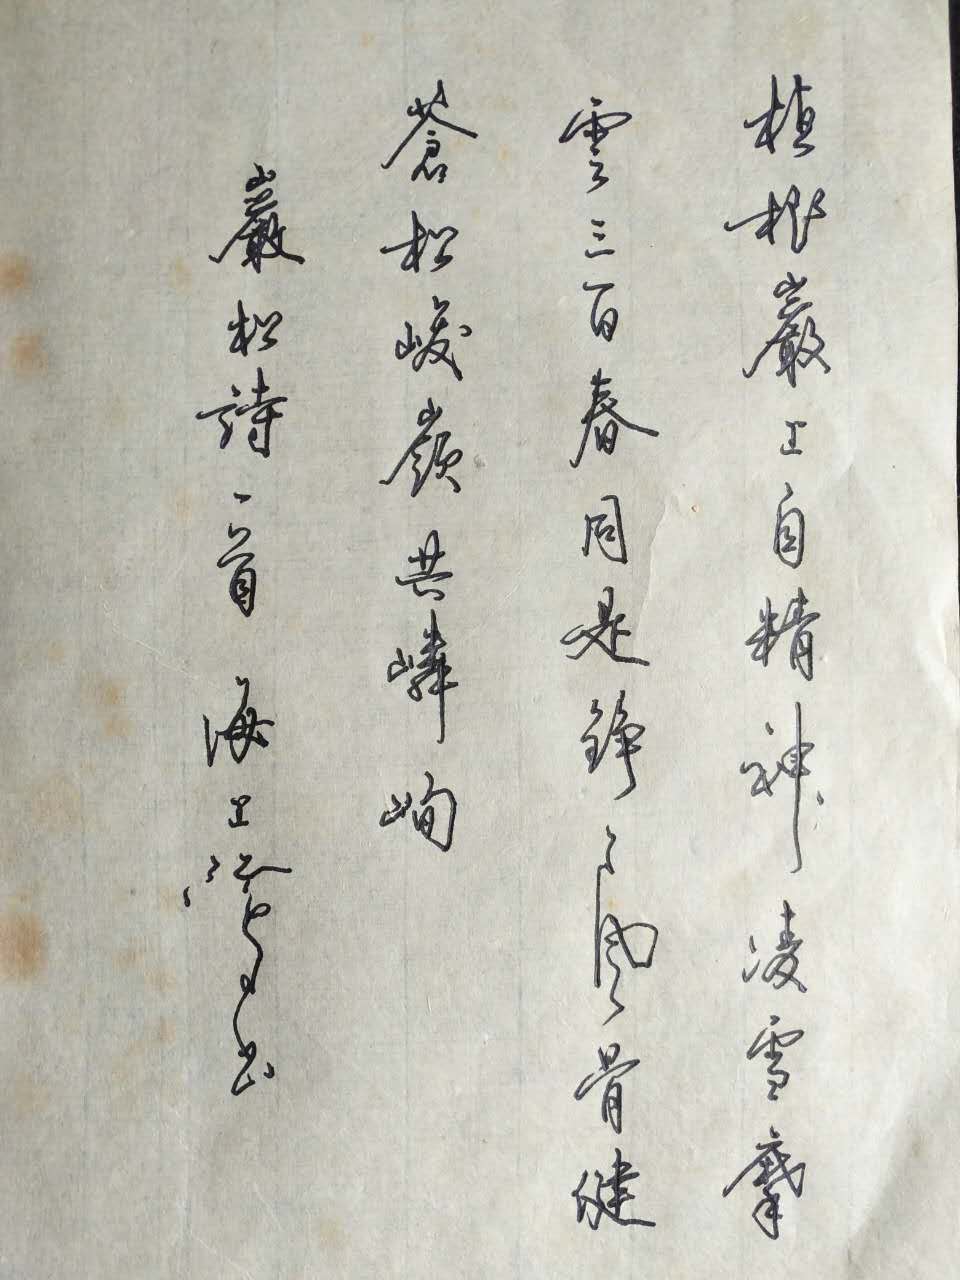 植根巖上自精神凌雪摩
雲三百春同是錚々風骨健
蒼松峻嶺共嶙峋
巖松詩一首 海上